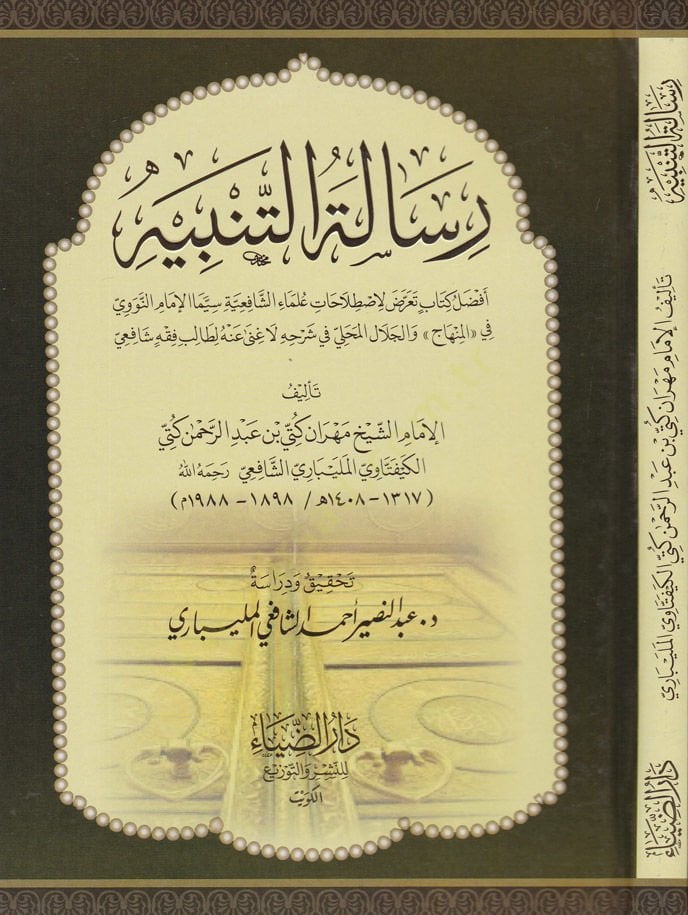 رِسَالَةُ التَّنْبِيهِ
أفضل كتاب تعرض لاصطلاحات علماء الشافعية سيما الإمام النووي
في «المنهاج» والجلال المحلي في شرحه لا غنى عنه لطالب فقه شافعي
تأليف
الإمام الشيخ مهران كتي بن عبد الرحمن كتي
الكيفتاوي المليباري الشافعي رحمه الله
(١٣١٧ - ١٤٠٨هـ / ١٨٩٨ - ١٩٨٨م)
تحقيق ودراسة
د. عبد النصير أحمد الشافعي المليباري
دار الضياء
للنشر والتوزيع
الكويت
رسالة التنبيه
تأليف الإمام مهران كتي بن عبد الرحمن كتي الكيفتاوي المليباري
دار الضياء